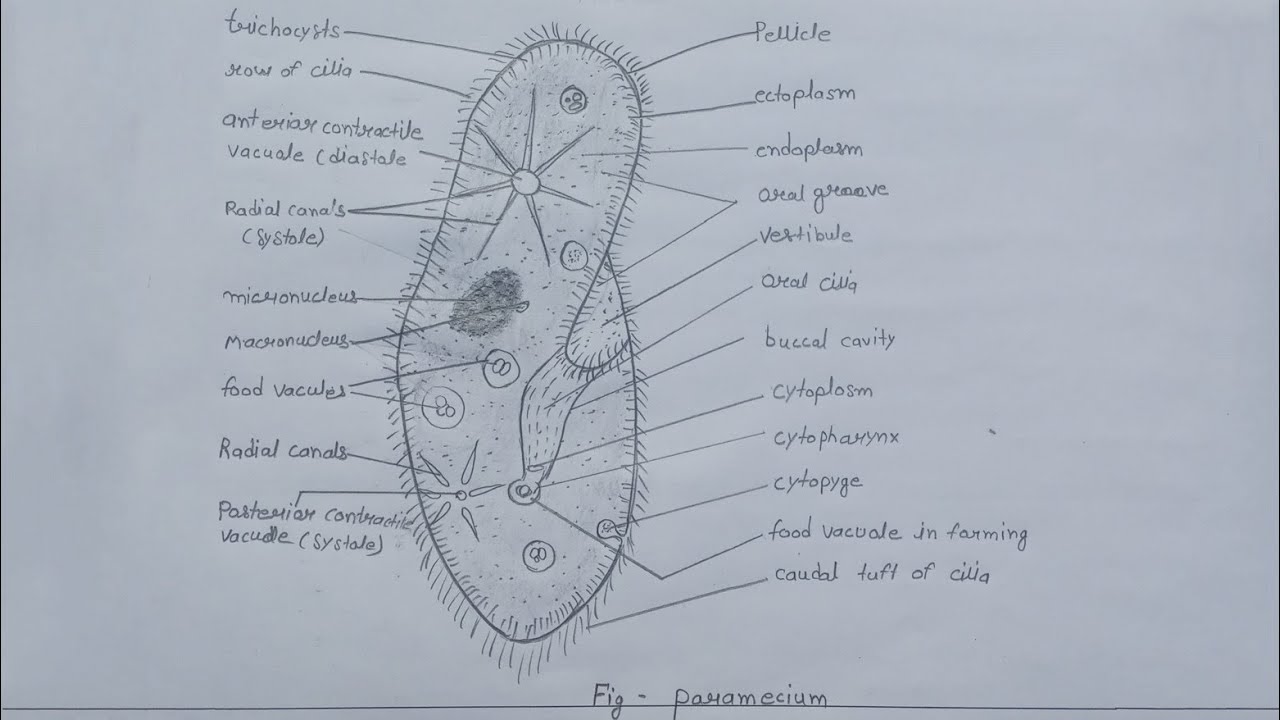 trichocysts
row of cilia
anteriar contractile
vacuale (diastale
Radial canals
(systole)
micronucleus
macronucleus
food vacules
Radial canals
Posteriar contractile
vacuale (systale)
Pellicle
ectoplasm
endoplasm
oral groove
vestibule
oral cilia
buccal cavity
cytoplosm
cytopharynx
cytopyge
food vacuale in farming
caudal tuft of cilia
Fig - paramecium